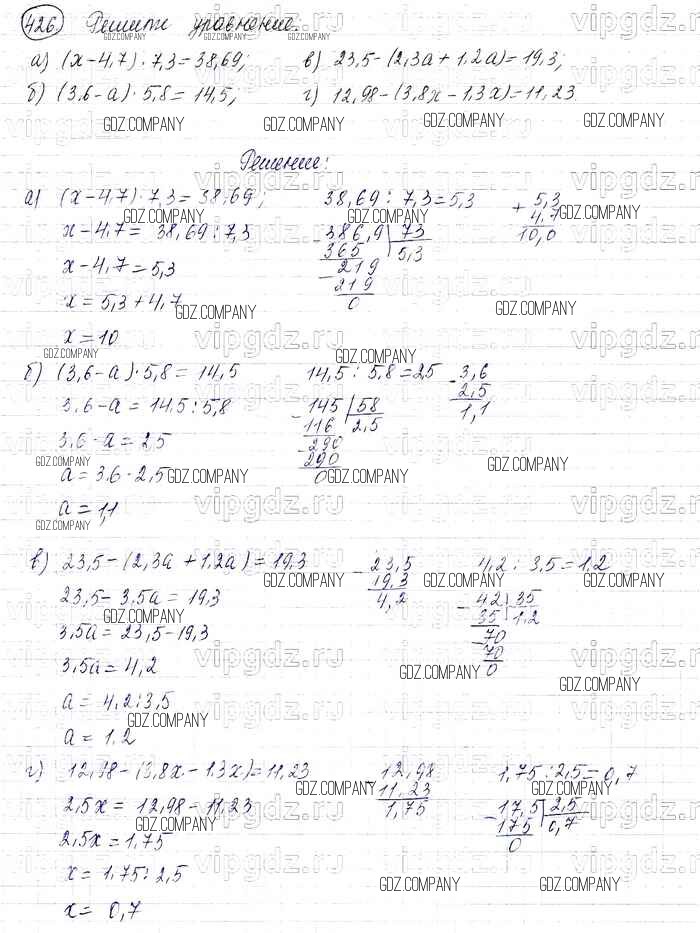 426. Решите уравнение:
а) (x-4,7)·7,3=38,69; в) 23,5-(2,3a+1,2a)=19,3;
б) (3,6-a)·5,8=14,5; г) 12,98-(3,8x-1,3x)=11,23.
Решение:
а) (x-4,7)·7,3=38,69; 38,69:7,3=5,3
x-4,7=38,69:7,3
x-4,7=5,3
x=5,3+4,7
x=10
386,9 73
365 5,3
219
219
0
+ 5,3
4,7
10,0
б) (3,6-a)·5,8=14,5 14,5:5,8=25
3,6-a=14,5:5,8
3,6-a=2,5
a=3,6-2,5
a=1,1
145 58
116 2,5
290
290
0
- 3,6
2,5
1,1
в) 23,5-(2,3a+1,2a)=19,3
23,5-3,5a=19,3
3,5a=23,5-19,3
3,5a=4,2
a=4,2:3,5
a=1,2
- 23,5
19,3
4,2
4,2:3,5=1,2
42 35
35 1,2
70
70
0
г) 12,98-(3,8x-1,3x)=11,23
2,5x=12,98-11,23
2,5x=1,75
x=1,75:2,5
x=0,7
- 12,98
11,23
1,75
1,75:2,5=0,7
17,5 2,5
175 0,7
0
vipgdz.ru
GDZ.COMPANY